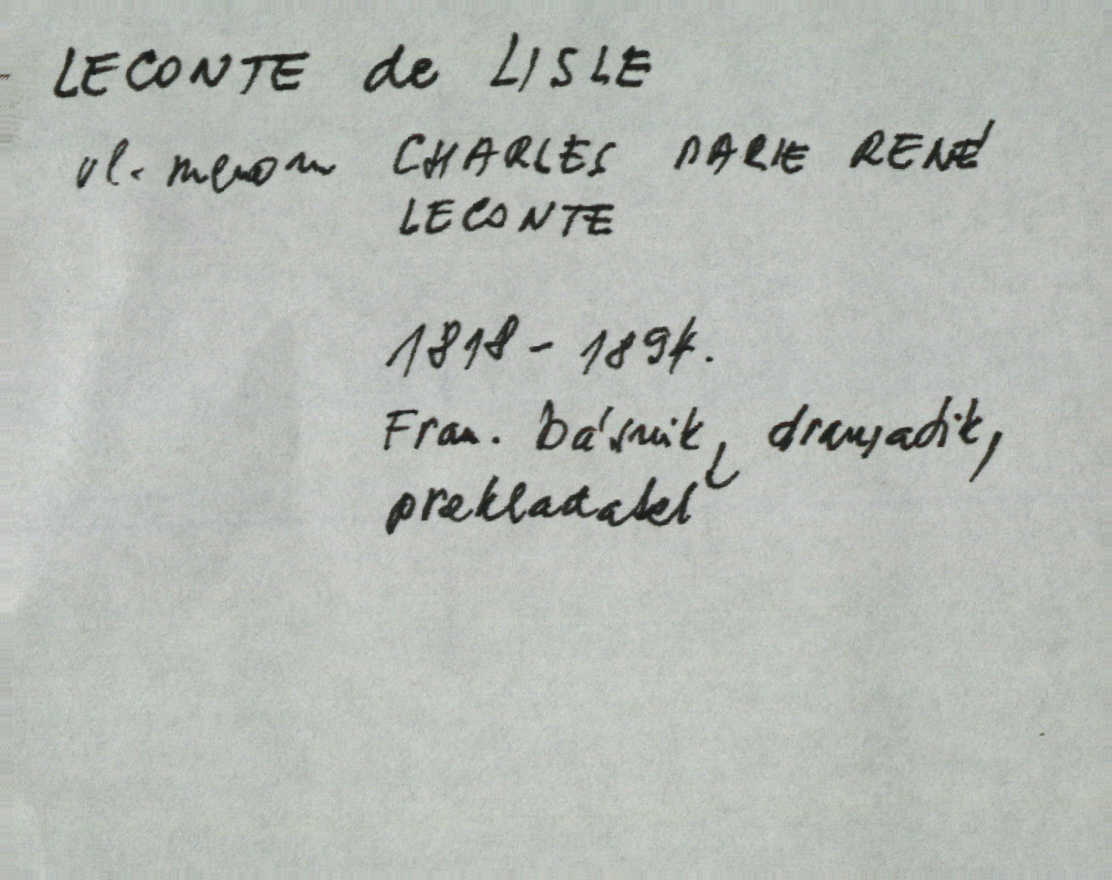 LECONTE de LISLE
vl. menom CHARLES MARIE RENÉ
LECONTE
1818 - 1894.
Fran. básnik, dramatik,
prekladatel